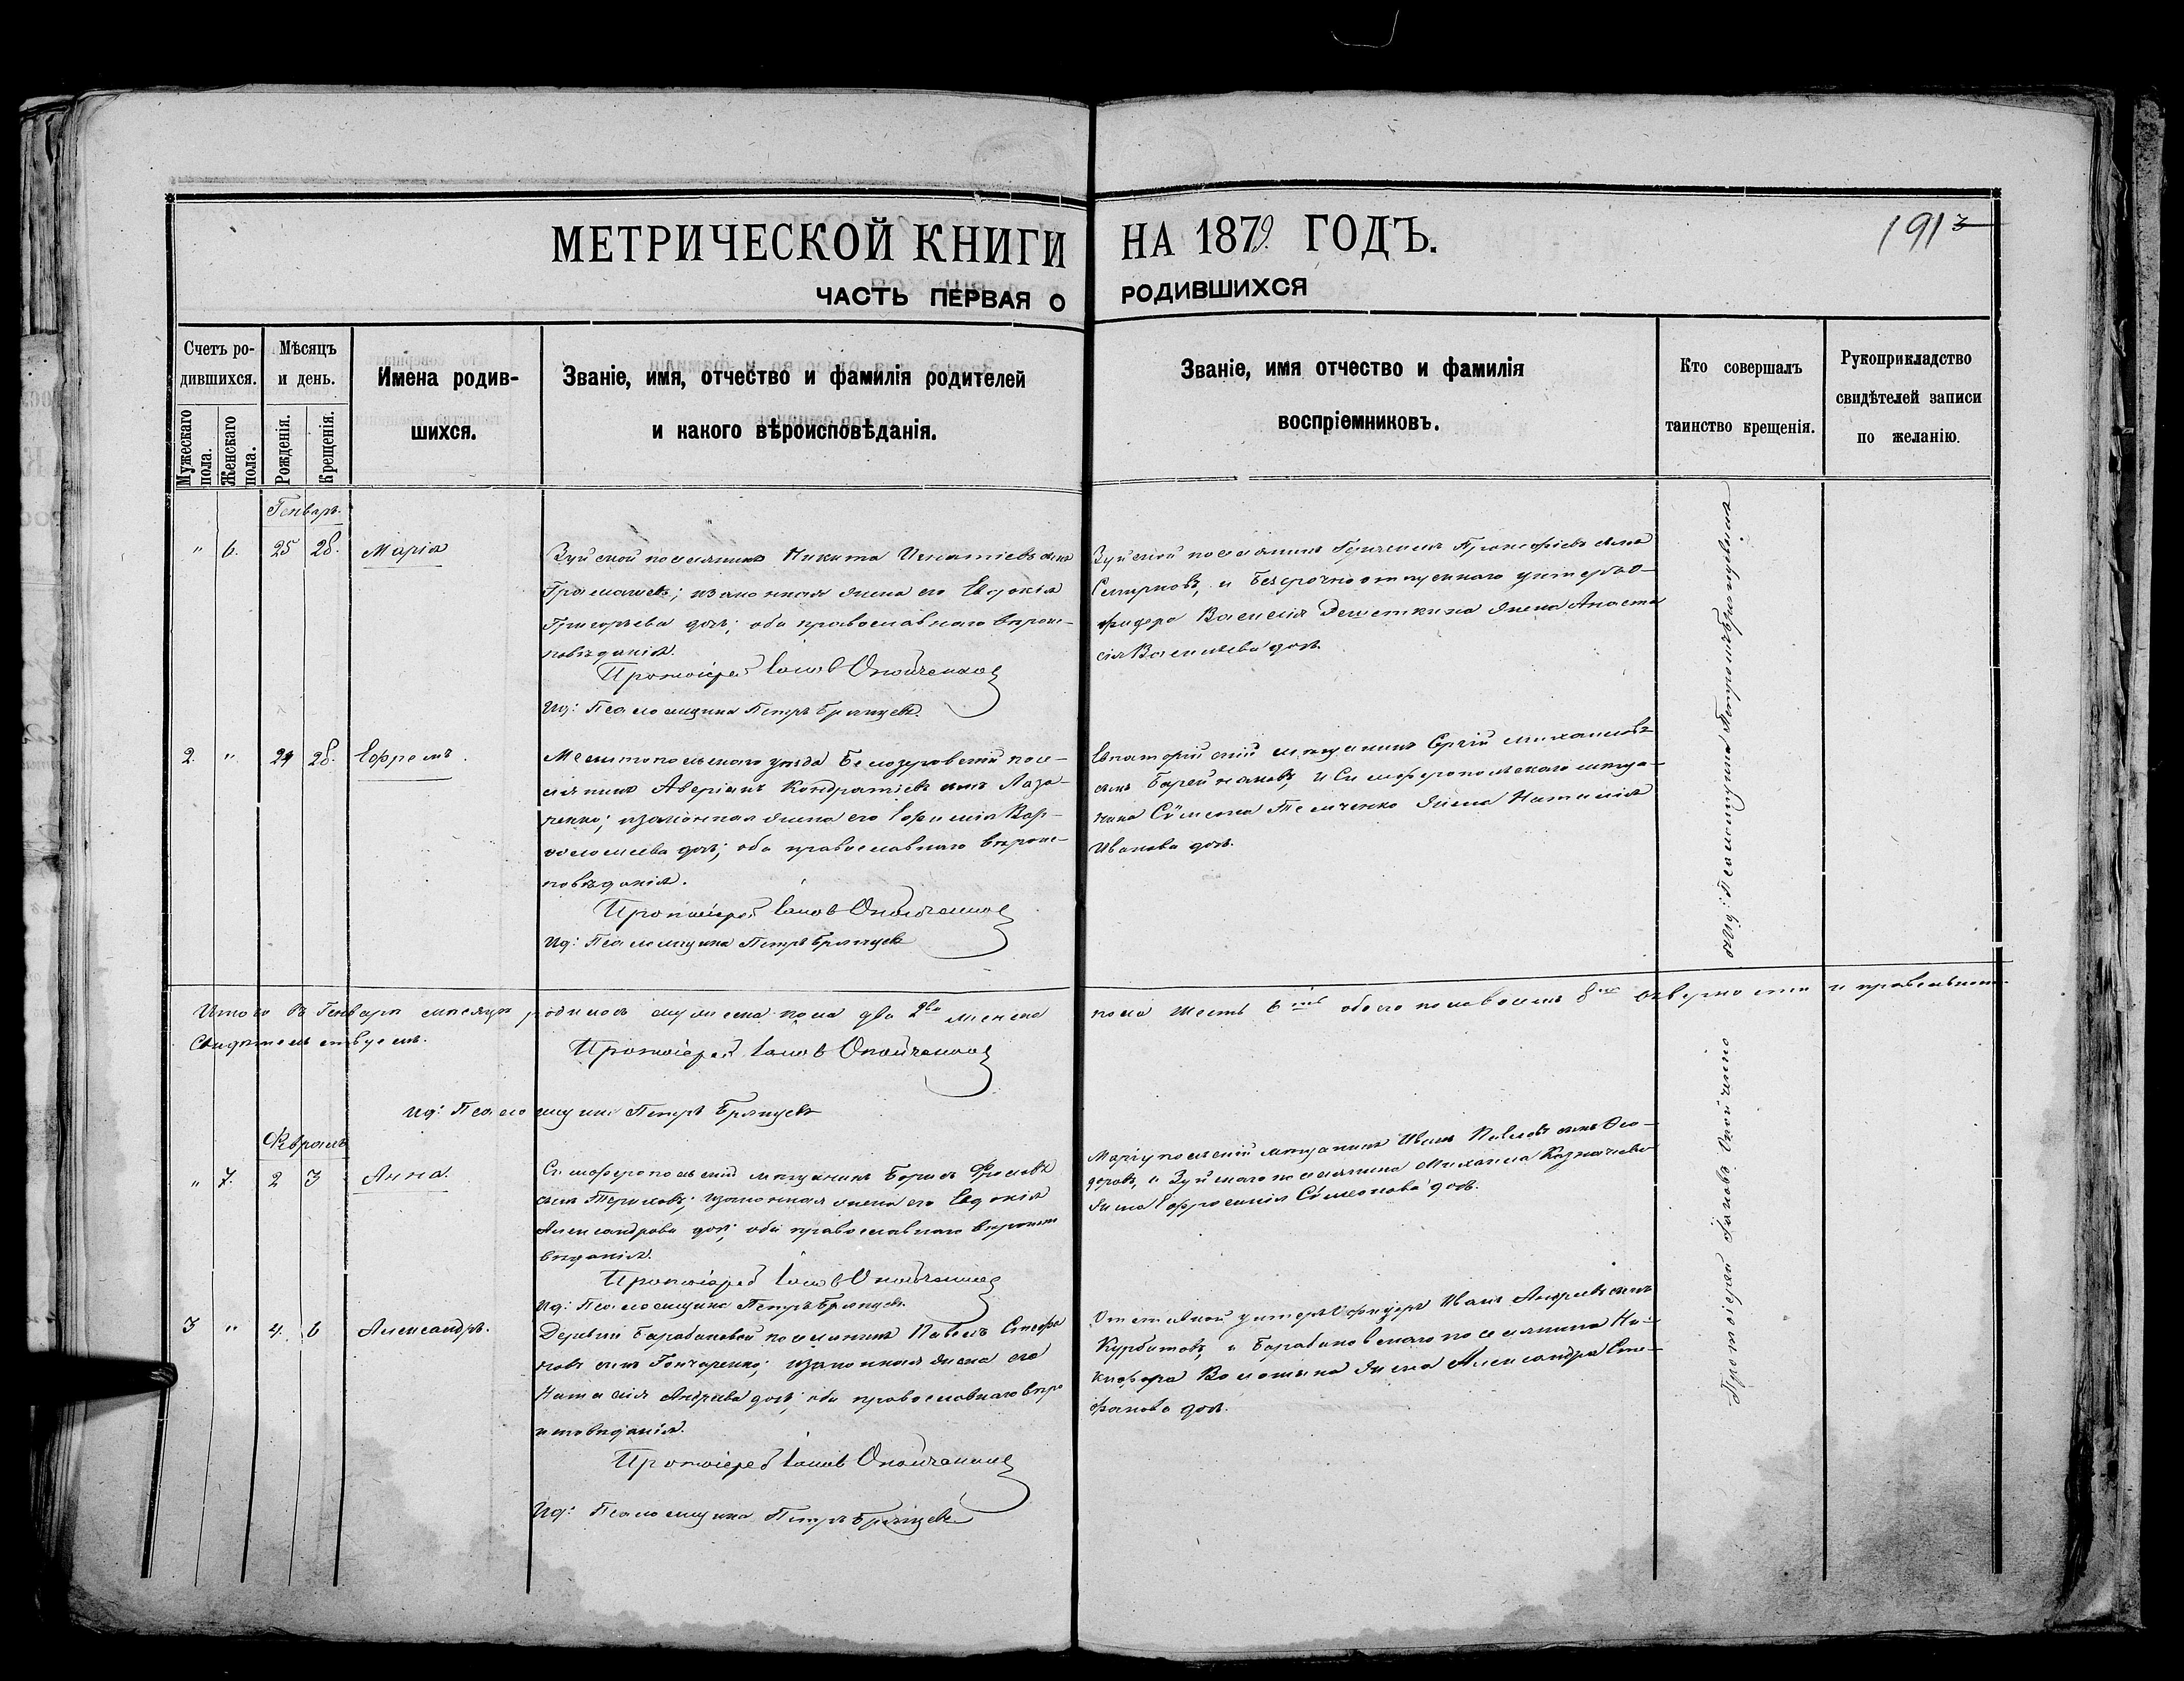 МЕТРИЧЕСКОЙ КНИГИ НА 1879 ГОДЪ.
191
ЧАСТЬ ПЕРВАЯ О РОДИВШИХСЯ
Счетъ ро-
дившихся.
Мужескаго
пола.
Женскаго
пола.
Мѣсяцъ
и день.
Рожденія.
Крещенія.
Имена родив-
шихся.
Званіе, имя, отчество и фамилія родителей
и какого вѣроисповѣданія.
Званіе, имя отчество и фамилія
воспріемниковъ.
Кто совершалъ
таинство крещенія.
Рукоприкладство
свидѣтелей записи
по желанію.
Генварь.
" 6. 25 28. Марія
Зуйской поселянинъ Никита Игнатіевъ сынъ
и законная жена его Евдокія
Григорьева дочь; оба православнаго вѣроис-
повѣданія.
Протоіерей Іаковъ Опойченко
Ид: Псаломщика Петръ Брянцевъ
Зуйской поселянинъ Прокофіевъ сынъ
Смирновъ, и безсрочно отпускнаго унтеръ О-
фицера Василія жена Анаста
сія Васильева дочь.
2. " 24 28. Ефремъ.
Мелитопольскаго уѣзда Бѣлозеровскій посе-
лянинъ Аверіанъ Кондратіевъ сынъ Лаза-
ренко; и законная жена его Ефимія Вар-
ѳоломеева дочь; оба православнаго вѣроис-
повѣданія.
Протоіерей Іаковъ Опойченко
Ид: Псаломщика Петръ Брянцевъ
Евпаторійскій мѣщанинъ Сергій Михаиловъ
сынъ и Симферопольскаго мѣща-
нина Сѵмеона жена Наталія
Иванова дочь.
Итого въ Генварѣ мѣсяцѣ родилось мужеска пола два 2ва женска
пола шесть 6ть обоего пола восемь 8мъ вѣрности и правильности
Свидѣтельствуемъ.
Протоіерей Іаковъ Опойченко
Ид: Псаломщика Петръ Брянцевъ
Февраль
" 7. 2 3 Анна.
Симферопольскій мѣщанинъ Борисъ Фроловъ
сынъ и законная жена его Евдокія
Александрова дочь; оба православнаго вѣроиспо
вѣданія.
Протоіерей Іаковъ Опойченко
Ид: Псаломщика Петръ Брянцевъ
Маріупольскій мѣщанинъ Иванъ Павловъ сынъ Ѳео-
доровъ, и Зуйскаго поселянина Михаила
жена Ефросинія Сѵмеонова дочь.
3 " 4. 6 Александръ.
Деревни Барабановой поселянинъ Павелъ Стефа
новъ сынъ Гончаренко; и законная жена его
Наталія Андреева дочь; оба православнаго вѣро
исповѣданія.
Протоіерей Іаковъ Опойченко
Ид: Псаломщика Петръ Брянцевъ
Отставной унтеръ Офицеръ Иванъ Андреевъ сынъ
Курбатовъ, и Барабановскаго поселянина Ни-
кифора жена Александра Сте-
фанова дочь.
Протоіерей Іаковъ Опойченко
Ид: Псаломщика Петръ Брянцевъ